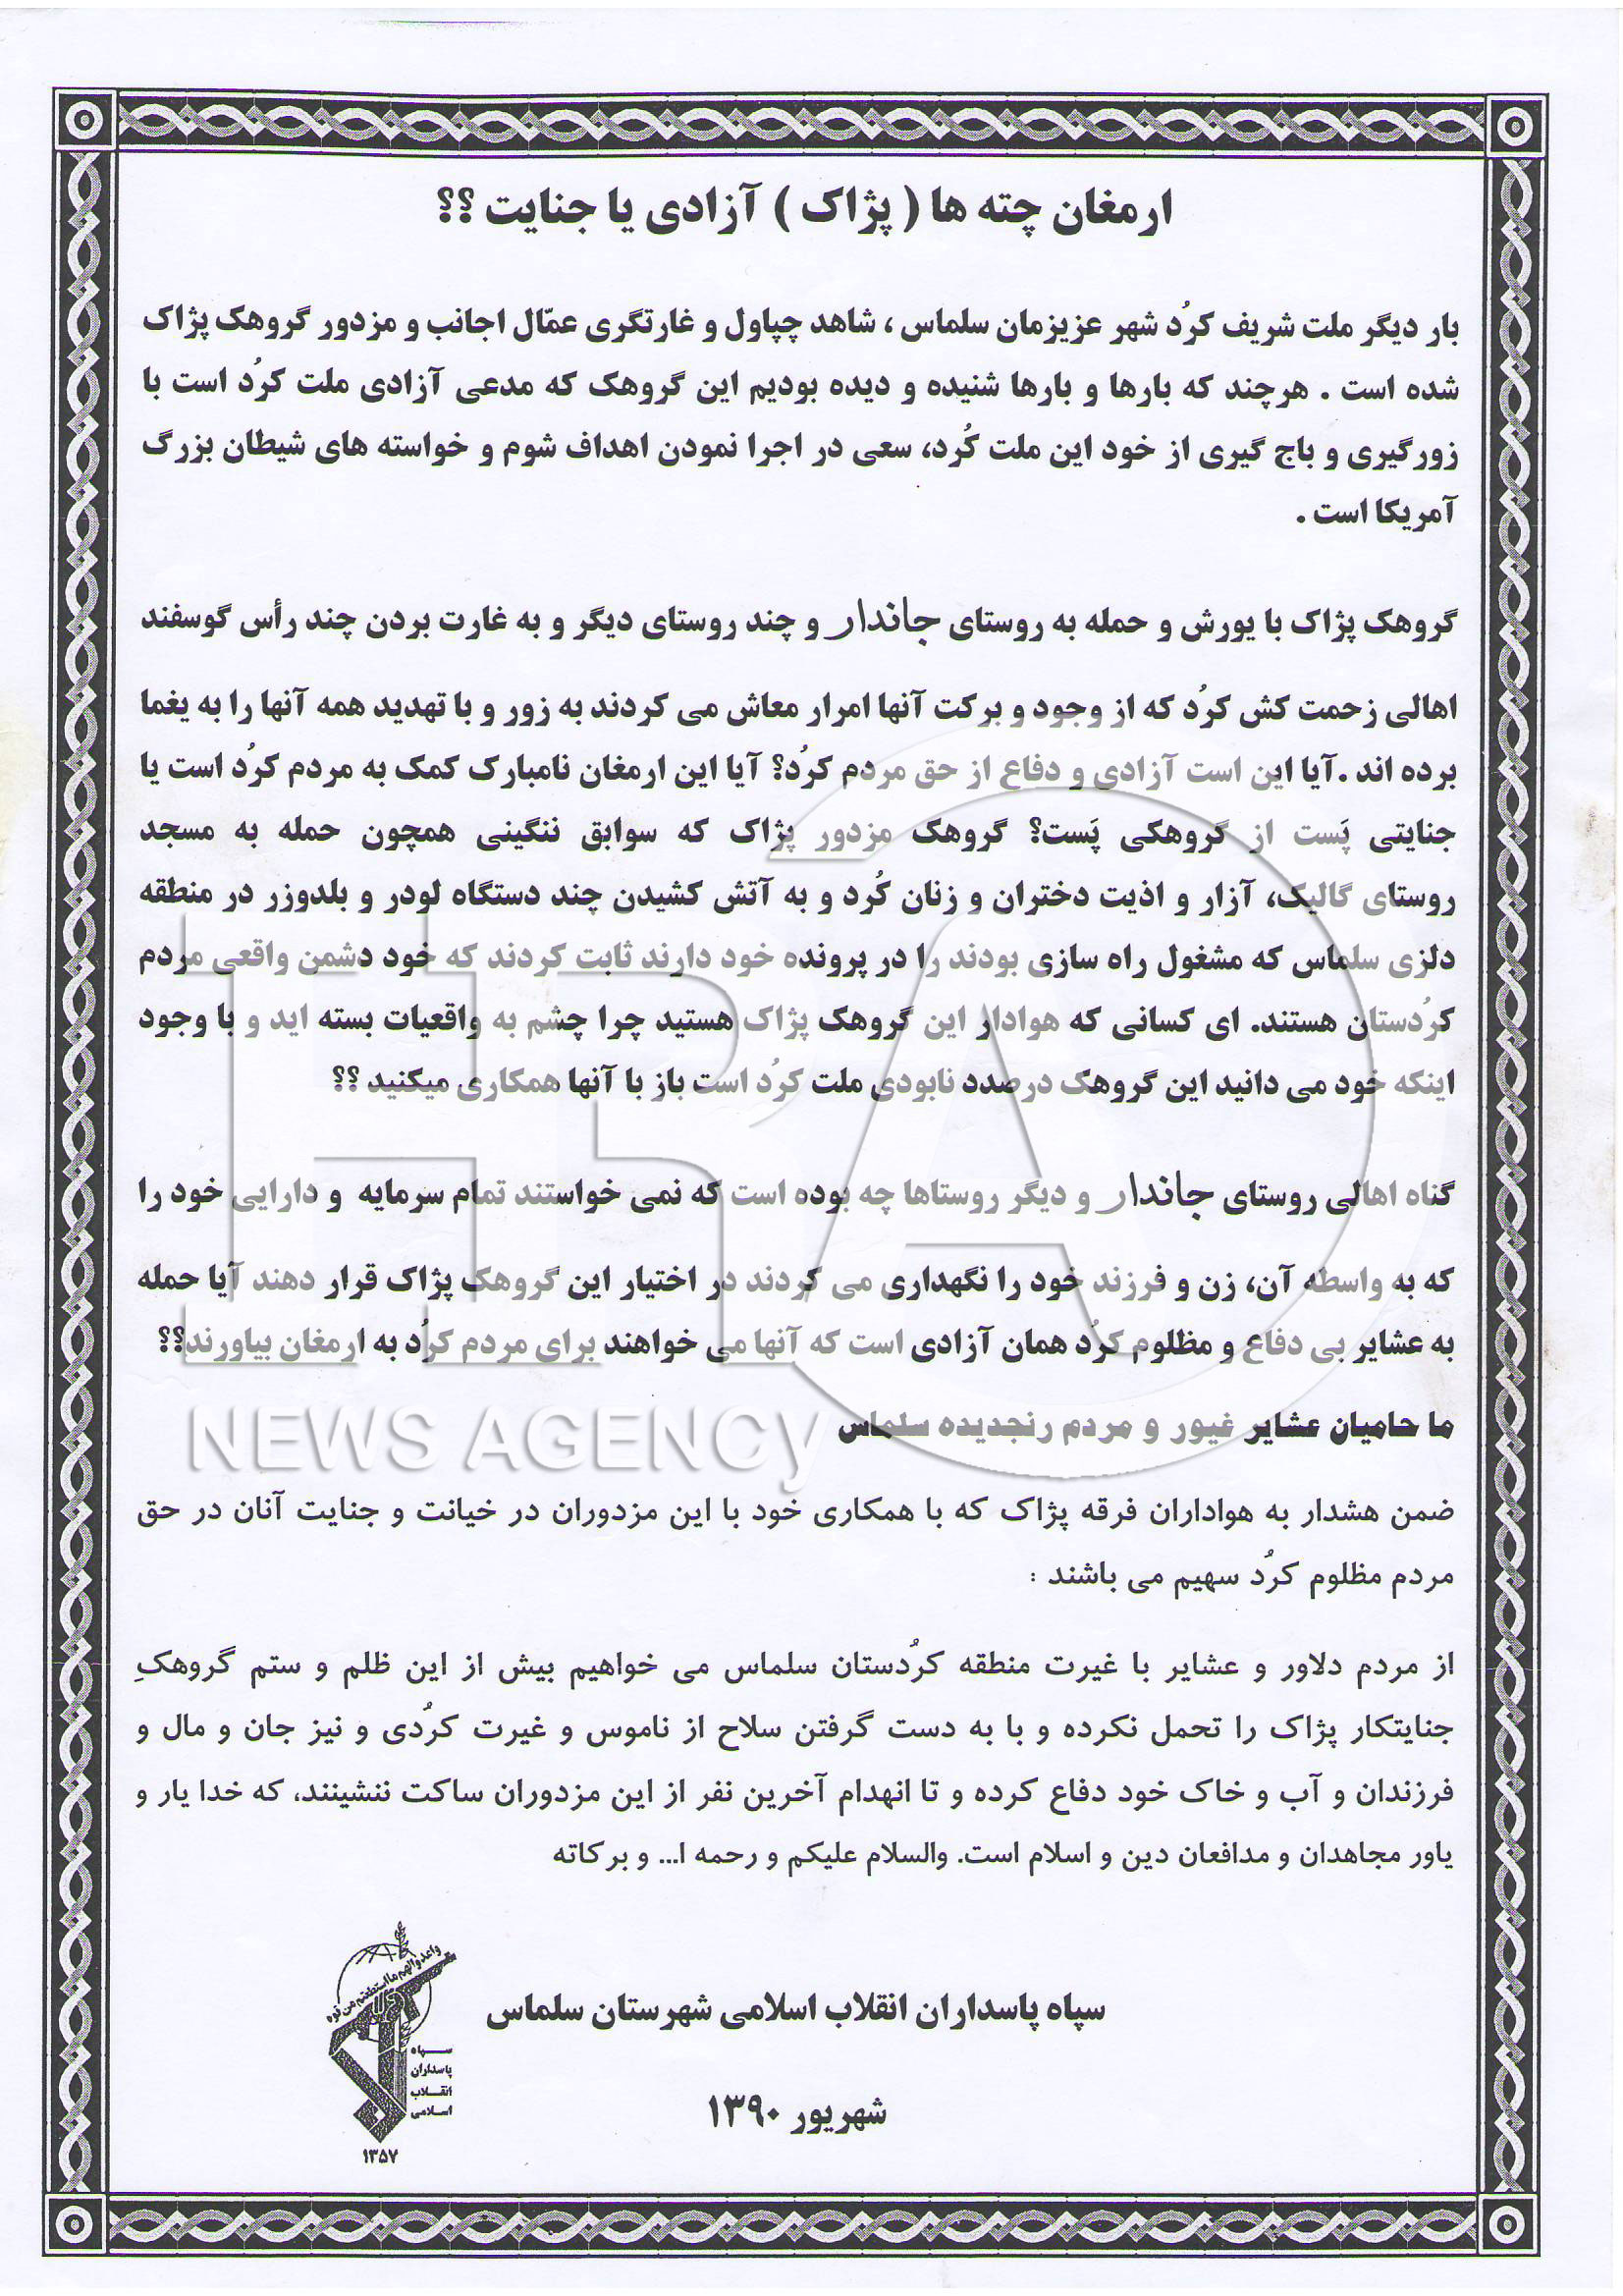 ارمغان چته ها ( پژاک ) آزادی یا جنایت ؟؟
بار دیگر ملت شریف کرُد شهر عزیزمان سلماس ، شاهد چپاول و غارتگری عمّال اجانب و مزدور گروهک پژاک
شده است . هرچند که بارها و بارها شنیده و دیده بودیم این گروهک که مدعی آزادی ملت کرُد است با
زورگیری و باج گیری از خود این ملت کُرد، سعی در اجرا نمودن اهداف شوم و خواسته های شیطان بزرگ
آمریکا است .
گروهک پژاک با یورش و حمله به روستای جاندار و چند روستای دیگر و به غارت بردن چند رأس گوسفند
اهالی زحمت کش کرُد که از وجود و برکت آنها امرار معاش می کردند به زور و با تهدید همه آنها را به یغما
برده اند .آیا این است آزادی و دفاع از حق مردم کرُد؟ آیا این ارمغان نامبارک کمک به مردم کرُد است یا
جنایتی پَست از گروهکی پَست؟ گروهک مزدور پژاک که سوابق ننگینی همچون حمله به مسجد
روستای گالیک، آزار و اذیت دختران و زنان کُرد و به آتش کشیدن چند دستگاه لودر و بلدوزر در منطقه
دلزی سلماس که مشغول راه سازی بودند را در پرونده خود دارند ثابت کردند که خود دشمن واقعی مردم
کرُدستان هستند. ای کسانی که هوادار این گروهک پژاک هستید چرا چشم به واقعیات بسته اید و با وجود
اینکه خود می دانید این گروهک درصدد نابودی ملت کرُد است باز با آنها همکاری میکنید ؟؟
گناه اهالی روستای جاندار و دیگر روستاها چه بوده است که نمی خواستند تمام سرمایه و دارایی خود را
که به واسطه آن، زن و فرزند خود را نگهداری می کردند در اختیار این گروهک پژاک قرار دهند آیا حمله
به عشایر بی دفاع و مظلوم کرُد همان آزادی است که آنها می خواهند برای مردم کرُد به ارمغان بیاورند؟؟
ما حامیان عشایر غیور و مردم رنجدیده سلماس
ضمن هشدار به هواداران فرقه پژاک که با همکاری خود با این مزدوران در خیانت و جنایت آنان در حق
مردم مظلوم کرُد سهیم می باشند :
از مردم دلاور و عشایر با غیرت منطقه کرُدستان سلماس می خواهیم بیش از این ظلم و ستم گروهکِ
جنایتکار پژاک را تحمل نکرده و با به دست گرفتن سلاح از ناموس و غیرت کرُدی و نیز جان و مال و
فرزندان و آب و خاک خود دفاع کرده و تا انهدام آخرین نفر از این مزدوران ساکت ننشینند، که خدا یار و
یاور مجاهدان و مدافعان دین و اسلام است. والسلام علیکم و رحمه ا... و برکاته
سپاه پاسداران انقلاب اسلامی شهرستان سلماس
شهریور ۱۳۹۰
واعدوا لهم ما استطعتم من قوة
سپاه
پاسداران
انقلاب
اسلامی
۱۳۵۷
HRA
NEWS AGENCY